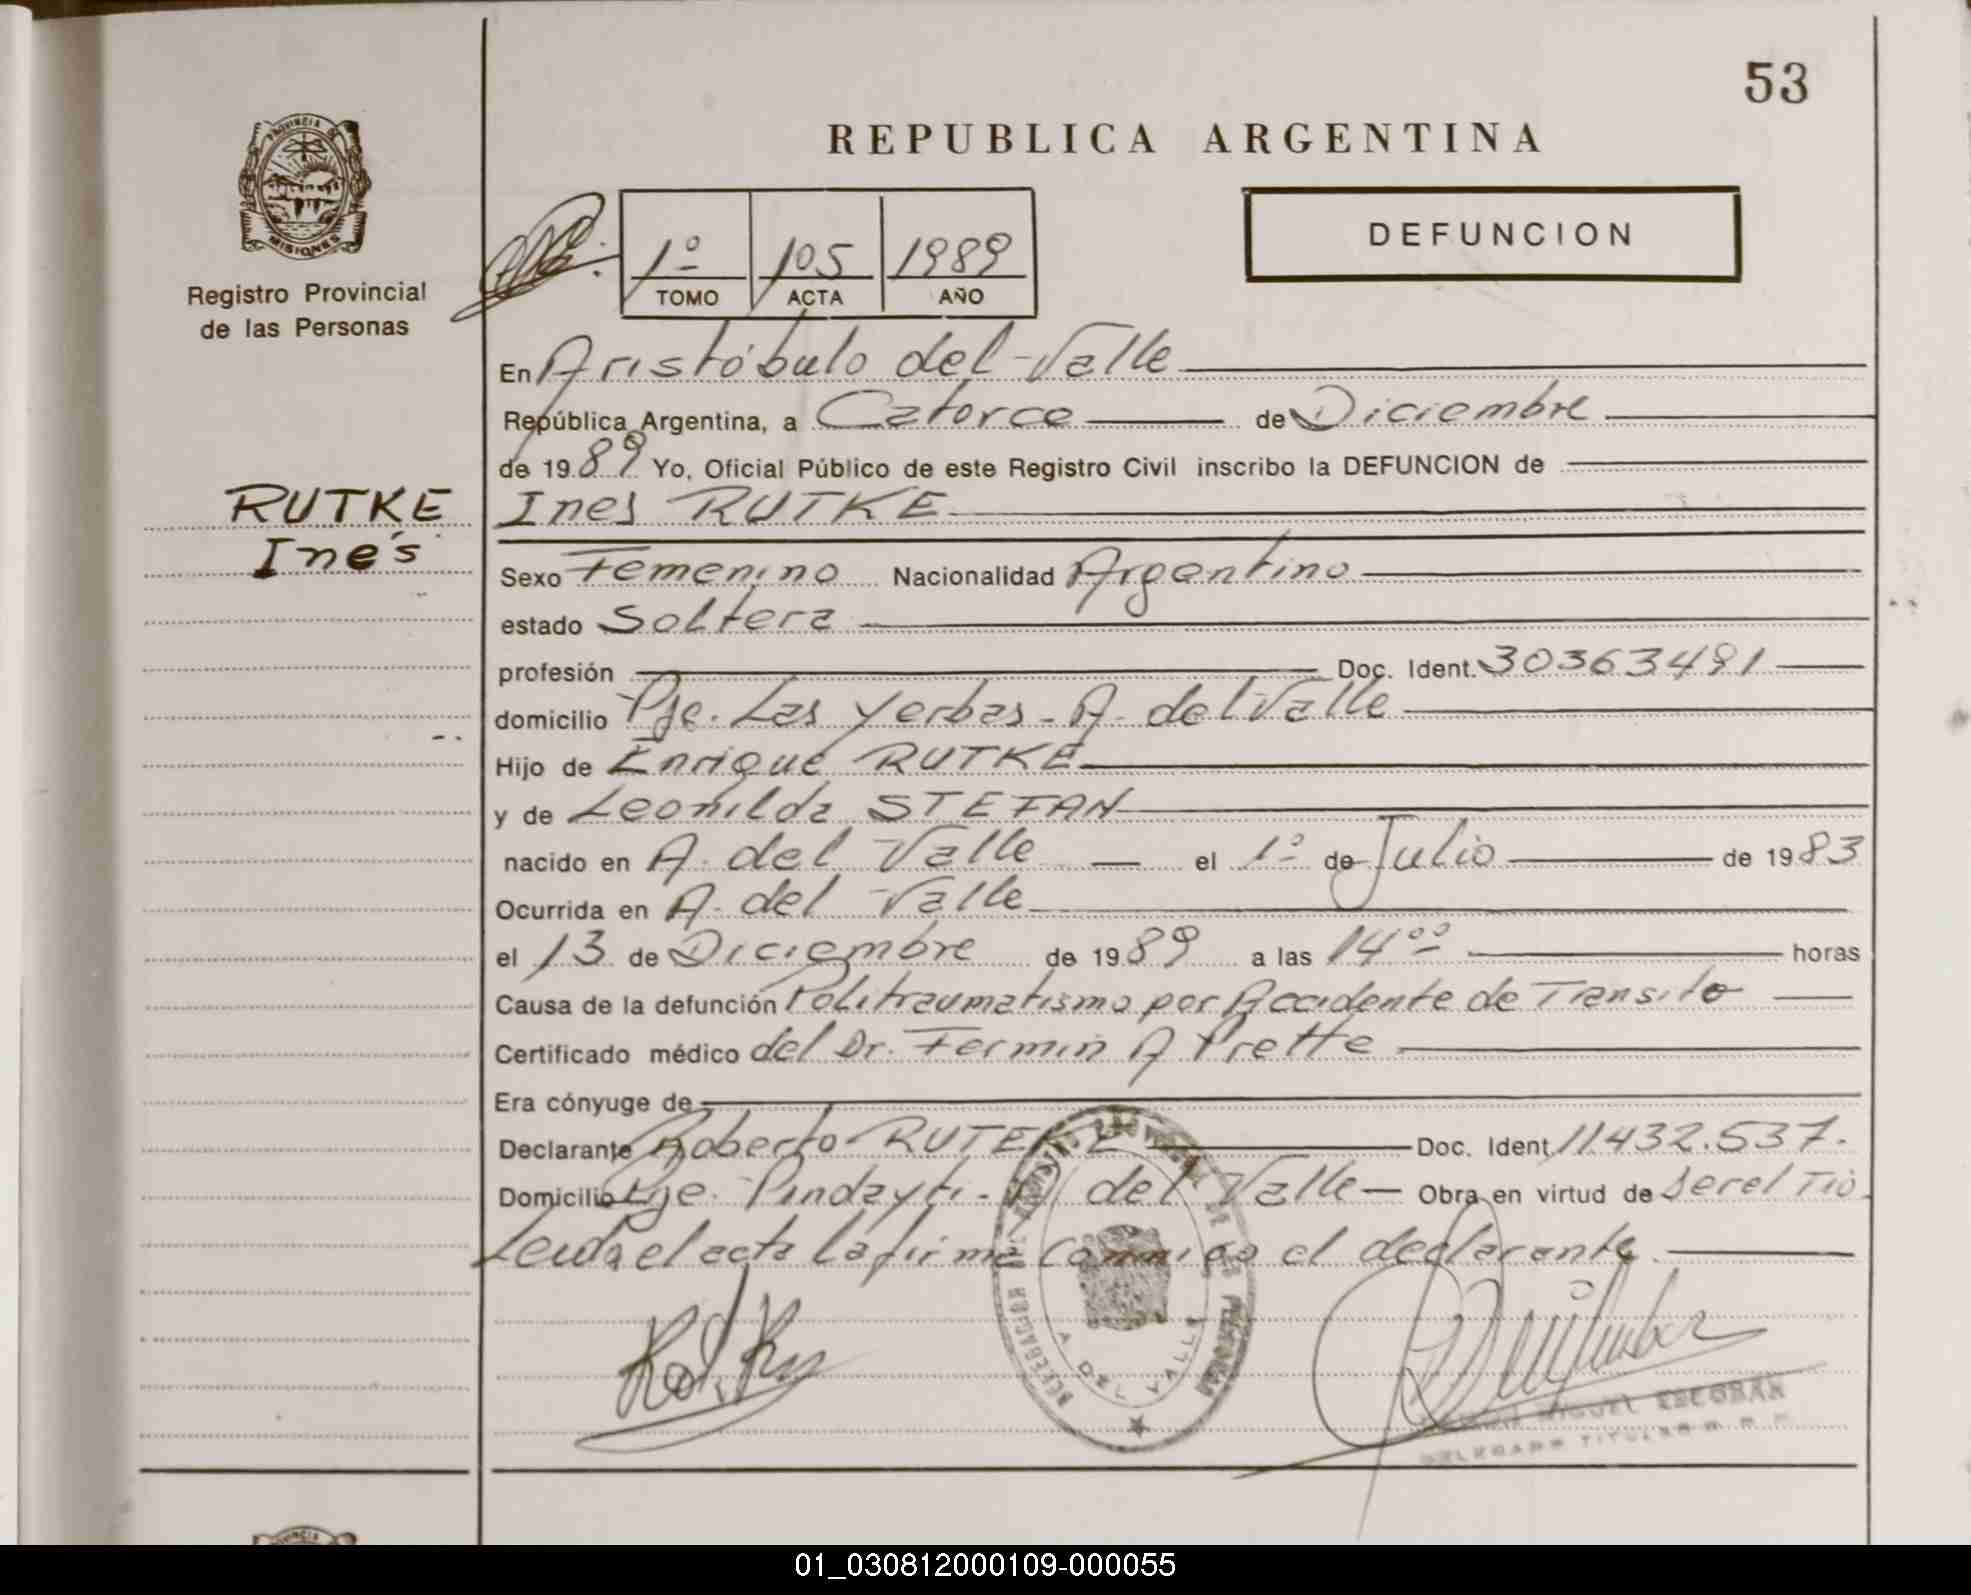 53
REPUBLICA ARGENTINA
PROVINCIA DE
MISIONES
Registro Provincial
de las Personas
1º 105 1989
TOMO ACTA AÑO
DEFUNCION
En Aristóbulo del Valle
República Argentina, a Catorce de Diciembre
de 1989 Yo, Oficial Público de este Registro Civil inscribo la DEFUNCION de
RUTKE
Inés
Ines RUTKE
Sexo Femenino Nacionalidad Argentino
estado Soltera
profesión Doc. Ident. 30363491
domicilio Pje. Las Yerbas - A. del Valle
Hijo de Enrique RUTKE
y de Leonilda STEFAN
nacido en A. del Valle el 1º de Julio de 1983
Ocurrida en A. del Valle
el 13 de Diciembre de 1989 a las 14 00 horas
Causa de la defunción Politraumatismo por Accidente de Transito
Certificado médico del Dr. Fermin A Prette
Era cónyuge de
Declarante Roberto Doc. Ident 11.432.537.
Domicilio Pje. Pindayti - A del Valle Obra en virtud de Ser el Tio
Leida el acta la firma conmigo el declarante
A DEL VALLE
MIGUEL ESCOBAR
DELEGADO TITULAR
PROVINCIA
01_030812000109-000055